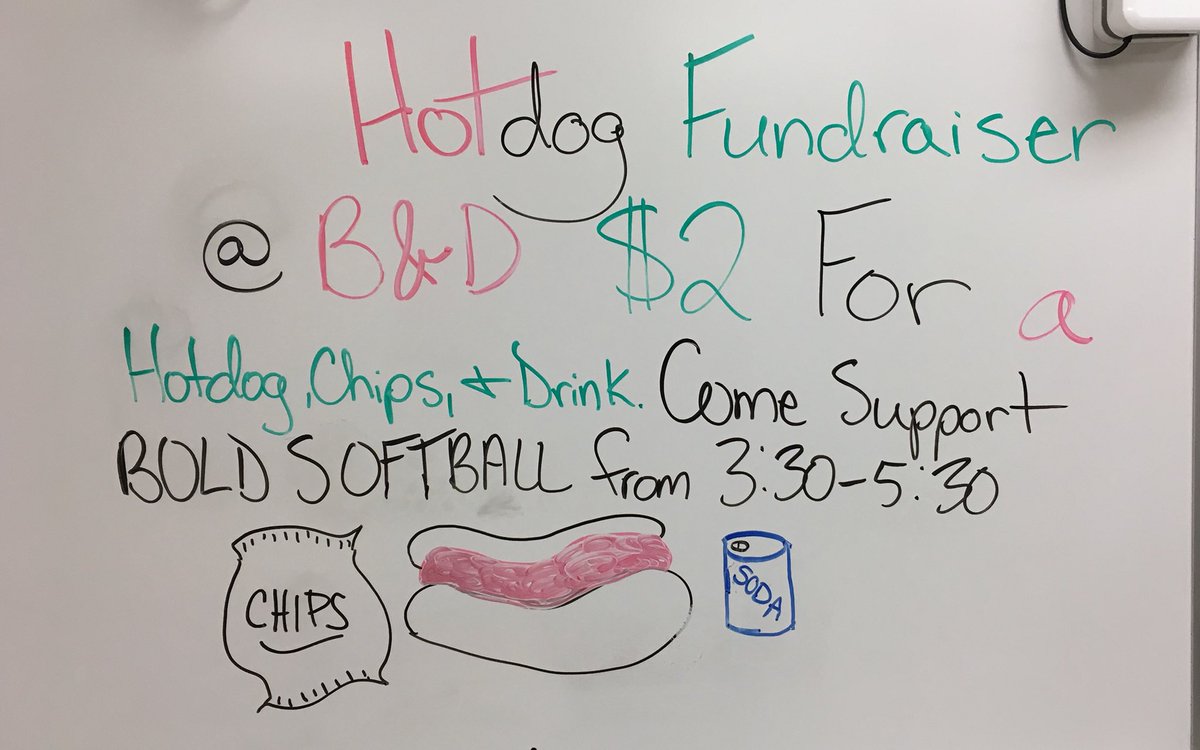 Hotdog Fundraiser
@ B&D $2 For a
Hotdog, Chips, + Drink. Come Support
BOLD SOFTBALL from 3:30-5:30
CHIPS
SODA